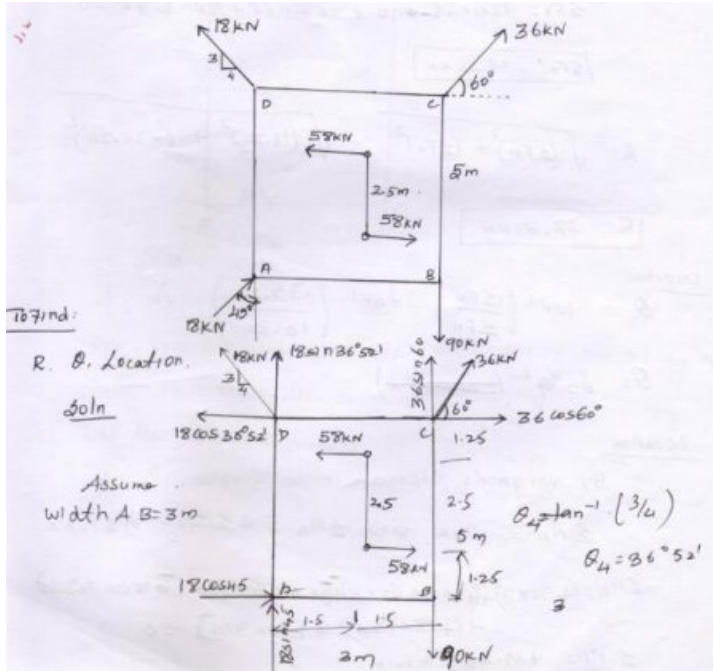 18KN
36KN
3
4
60°
D
C
58KN
2.5m
5m
58KN
A
B
45°
18KN
90KN
To find:
R. θ. Location.
Soln
18KN
18sin36°52'
36sin60
36KN
3
4
60°
18cos36°52'
D
C
36cos60°
58KN
1.25
Assume
width AB=3m
2.5
2.5
5m
θ4=tan⁻¹(3/4)
θ4=36°52'
58KN
1.25
18cos45
A
B
3
18sin45
1.5
1.5
3m
90KN